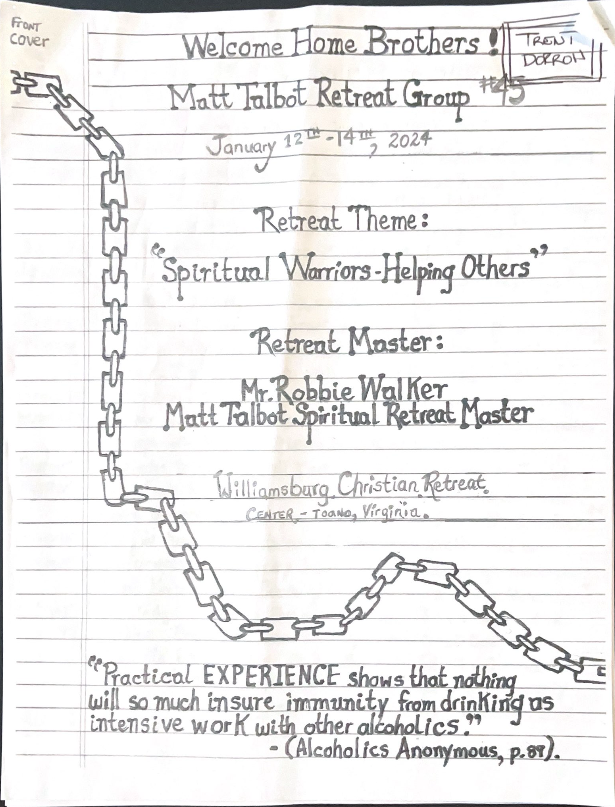 FRONT
COVER
Welcome Home Brothers!
TRENT
DORROH
Matt Talbot Retreat Group #45
January 12TH-14TH, 2024
Retreat Theme:
"Spiritual Warriors-Helping Others"
Retreat Master:
Mr. Robbie Walker
Matt Talbot Spiritual Retreat Master
Williamsburg Christian Retreat
CENTER - TOANO, Virginia.
"Practical EXPERIENCE shows that nothing
will so much insure immunity from drinking as
intensive work with other alcoholics."
- (Alcoholics Anonymous, p.89).